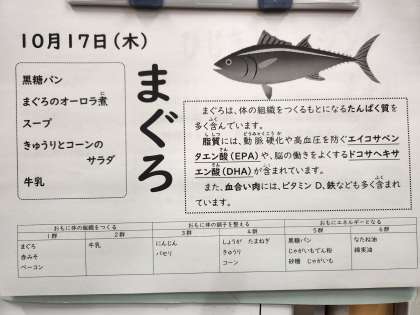 10月17日(木)
黒糖パン
まぐろのオーロラ煮
スープ
きゅうりとコーンの
サラダ
牛乳
まぐろ
まぐろは、体の組織をつくるもとになるたんぱく質を
多く含んでいます。
脂質には、動脈硬化や高血圧を防ぐエイコサペン
タエン酸(EPA)や、脳の働きをよくするドコサヘキサ
エン酸(DHA)が含まれています。
また、血合い肉には、ビタミンD、鉄なども多く含まれ
ています。
おもに体の組織をつくる おもに体の調子を整える おもにエネルギーとなる
1群 2群 3群 4群 5群 6群
まぐろ 牛乳 にんじん しょうが たまねぎ 黒糖パン なたね油
赤みそ パセリ きゅうり じゃがいもでん粉 綿実油
ベーコン コーン 砂糖 じゃがいも